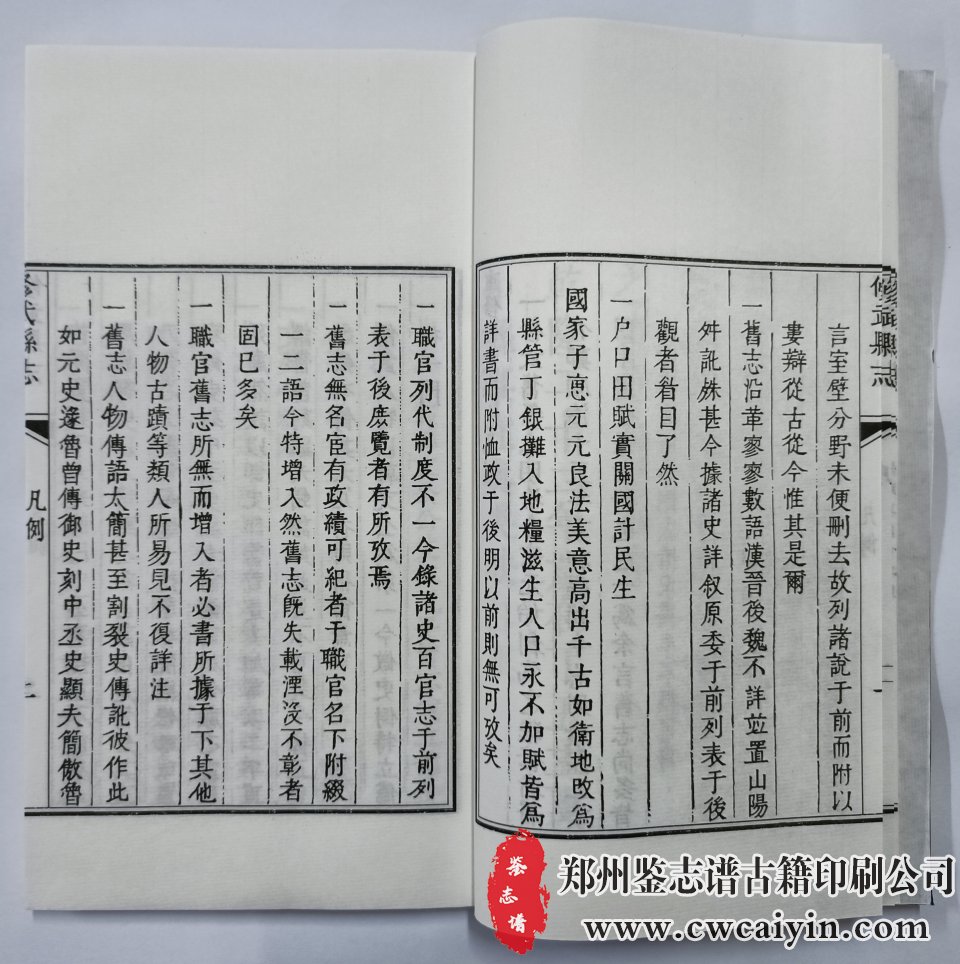 修武縣志
言室壁分野未便刪去故列諸說于前而附以
婁辯從古從今惟其是爾
一舊志沿革寥寥數語漢晉後魏不詳並置山陽
舛訛殊甚今據諸史詳叙原委于前列表于後
觀者眉目了然
一户口田賦實關國計民生
國家子惠元元良法美意高出千古如衛地改爲
一縣管丁銀攤入地糧滋生人口永不加賦皆爲
詳書而附恤政于後明以前則無可攷矣
一職官列代制度不一今錄諸史百官志于前列
表于後庶覽者有所攷焉
一舊志無名宦有政績可紀者于職官名下附綴
一二語今特增入然舊志既失載湮沒不彰者
固已多矣
一職官舊志所無而增入者必書所據于下其他
人物古蹟等類人所易見不復詳注
一舊志人物傳語太簡甚至割裂史傳訛彼作此
如元史逯魯曾傳御史刻中丞史顯夫簡傲魯
修武縣志
凡例
二
鉴志谱
郑州鉴志谱古籍印刷公司
www.cwcaiyin.com